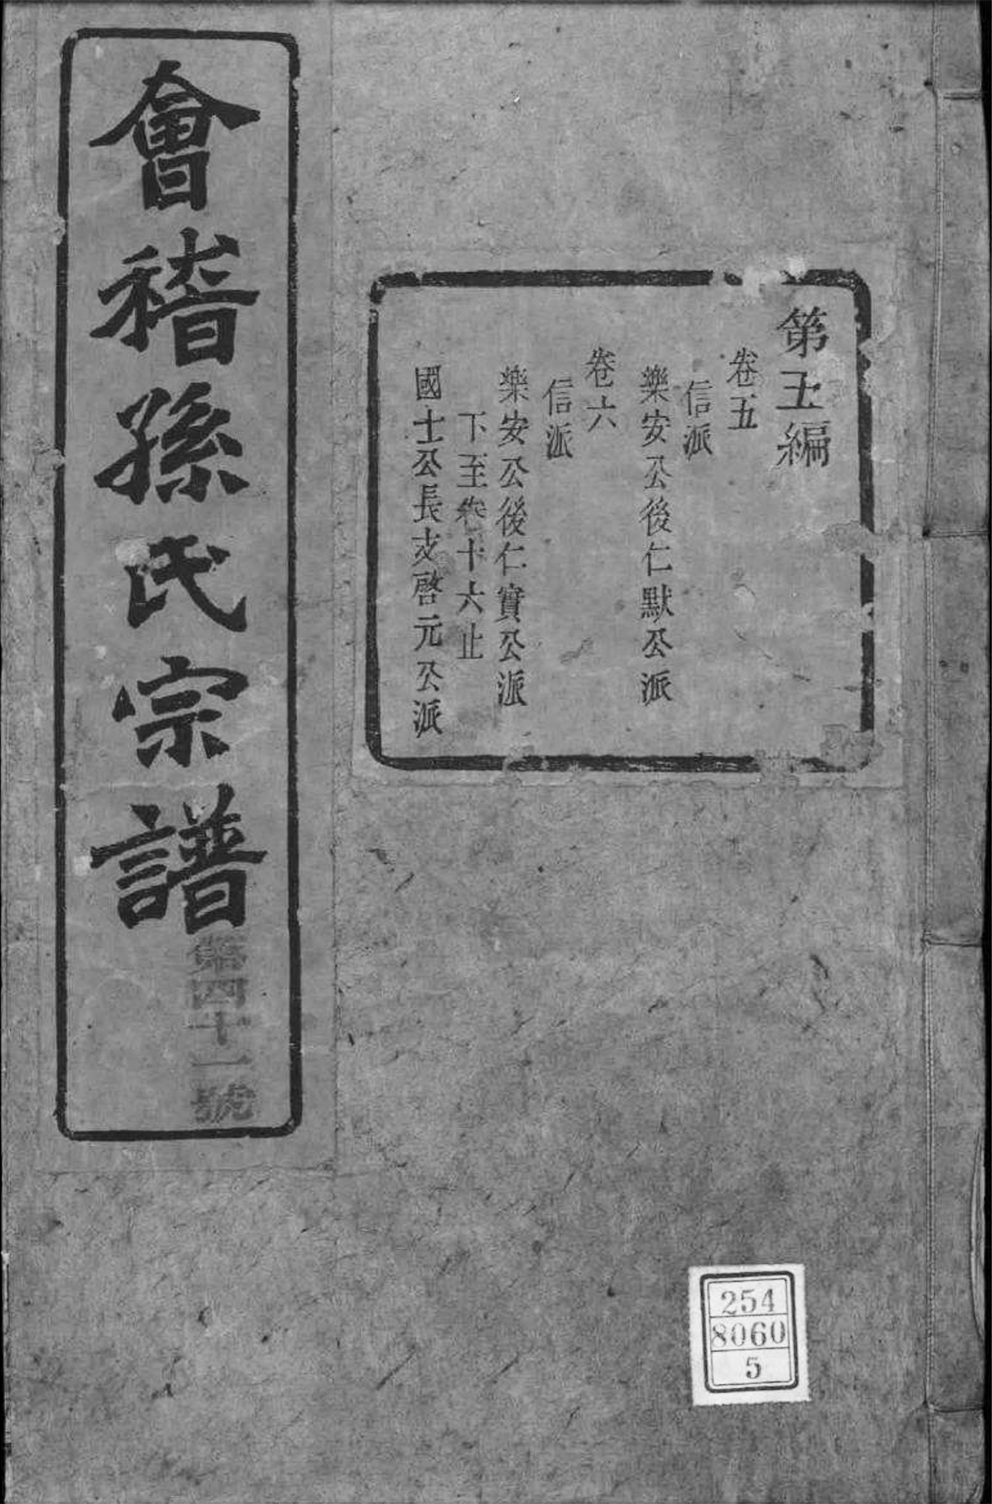 第五編
卷五
信派
樂安公後仁默公派
卷六
信派
樂安公後仁實公派
下至卷十六止
國士公長支啓元公派
會稽孫氏宗譜
第四十一號
254
8060
5